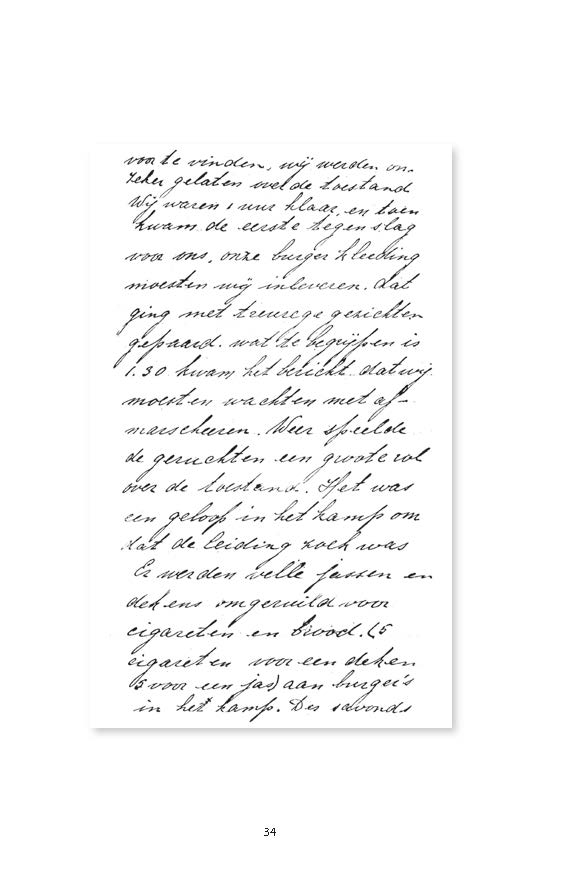 voor te vinden, wij werden on-
zeker gelaten over de toestand
Wij waren 1 uur klaar, en toen
kwam de eerste tegenslag
voor ons, onze burger kleeding
moesten wij inleveren. Dat
ging met treurege gezichten
gepaard. wat te begrijpen is
1.30 kwam het bericht dat wij
moesten wachten met af-
marscheeren. Weer speelde
de geruchten een groote rol
over de toestand. Het was
een geloop in het kamp om
dat de leiding zoek was
Er werden velle jassen en
dekens omgeruild voor
cigareten en brood. (5
cigareten voor een deken
15 voor een jas) aan burgers
in het kamp. Des savonds
34